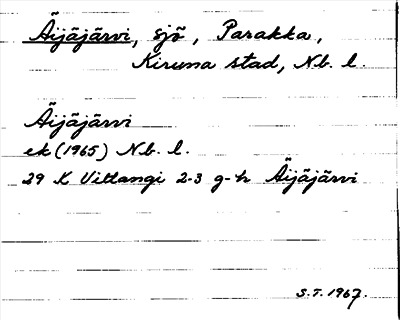 Äijäjärvi, sjö, Parakka,
Kiruna stad, Nb. l.
Äijäjärvi
ek (1965) Nb. l.
29 K Vittangi 2-3 g-h Äijäjärvi
S.T. 1967.